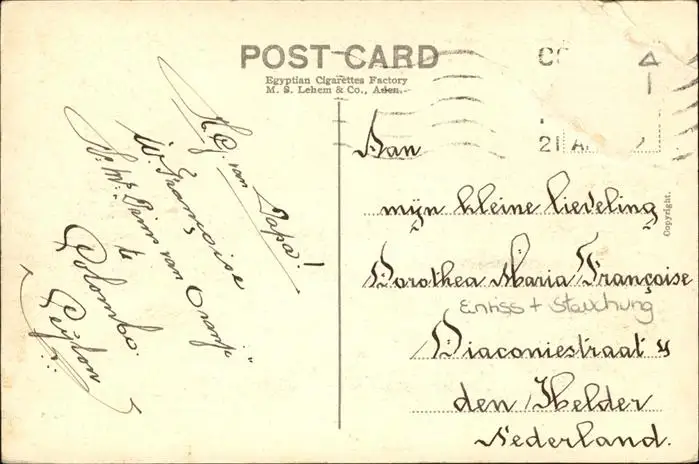 POST CARD
Egyptian Cigarettes Factory
M. S. Lehem & Co., Aden.
H. G. van Papa!
W. Françoise
S. Ms. Prins van Oranje"
te
Colombo
Ceylon
21 A
Aan
mijn kleine lieveling
Dorothea Maria Françoise
Einriss + Stauchung
Diaconiestraat 4
den Helder
Nederland.
Copyright.